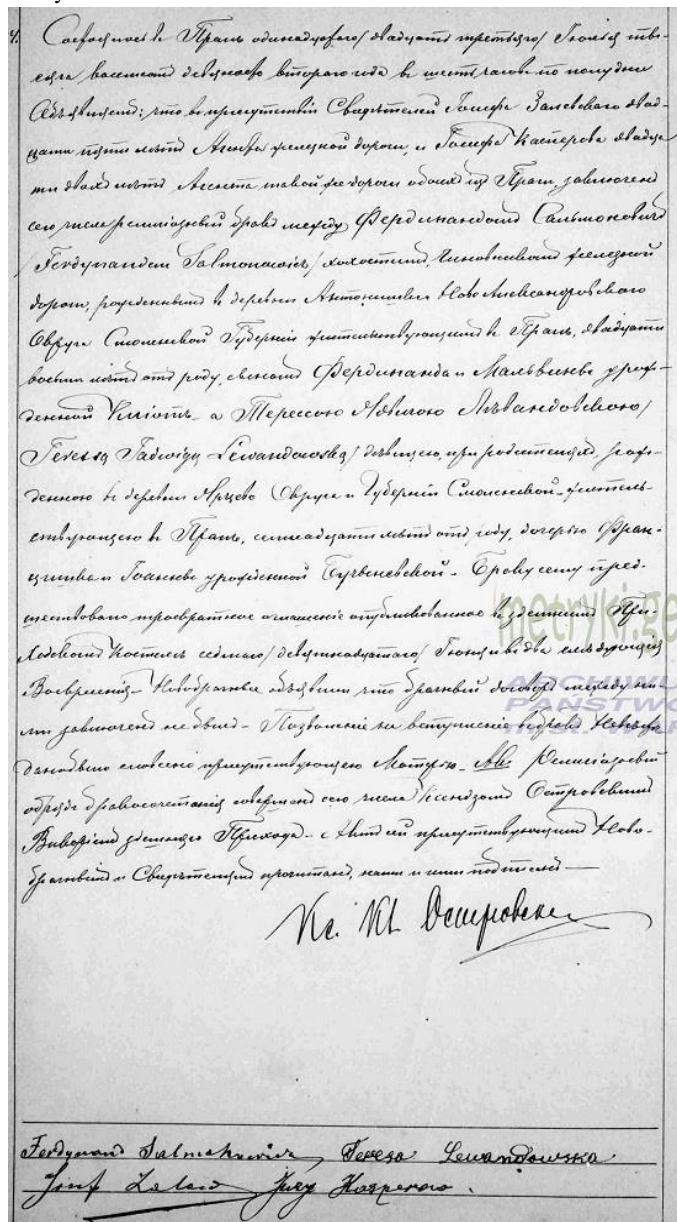 Состоялось въ Прагѣ одинадцатаго/двадцать третьяго/ Іюля ты-
сяча восемьсотъ девяносто втораго года въ шесть часовъ по полудни
Объявляемъ; что въ присутствіи Свидѣтелей Іосифа Залевскаго двад-
цати пяти лѣтъ Агента желѣзной дороги, и Іосифа Касперова двадца-
ти двухъ лѣтъ Агента таковой же дороги обоихъ изъ Праги, заключенъ
сего числа религіозный бракъ между Фердинандомъ Сальмоновичъ
/Ferdynandem Salmonowicz/ холостымъ, Чиновникомъ желѣзной
дороги, рожденнымъ въ деревнѣ Ново Александровскаго
Округа Смоленской Губерніи жительствующимъ въ Прагѣ, двадцати
восьми лѣтъ отъ роду, сыномъ Фердинанда и Мальвины урож-
денной а Терессою Ядвигою Левандовскою/
Teressą Jadwigą Lewandowską/ дѣвицею, при родителяхъ, рож-
денною въ деревнѣ Ярцево Округа и Губерніи Смоленской жительст-
ствующею въ Прагѣ, семнадцати лѣтъ отъ роду, дочерью Фран-
цишка и Іоанны урожденной - Браку сему пред-
шествовало троекратное оглашеніе опубликованное въ здѣшнемъ При-
ходскомъ Костелѣ седьмаго/девятнадцатаго/ Іюня и въ два слѣдующія
Воскресенія - Новобрачные объявили что брачный договоръ между ни-
ми заключенъ не былъ - Позволеніе на вступленіе въ бракъ Невѣстѣ
дано было словесно присутствующею Матерью - Религіозный
обрядъ бракосочетанія совершенъ сего числа Ксендзомъ Островскимъ
Викаріемъ здѣшняго Прихода - Актъ сей присутствующимъ Ново-
брачнымъ и Свидѣтелямъ прочитанъ, нами и ими подписанъ -
Кс. Островски
Ferdynand Salmonowicz, Teresa Lewandowska
Józef Jozef Kasperow.
metryki.ge
ARCHIWU
PAŃSTWO